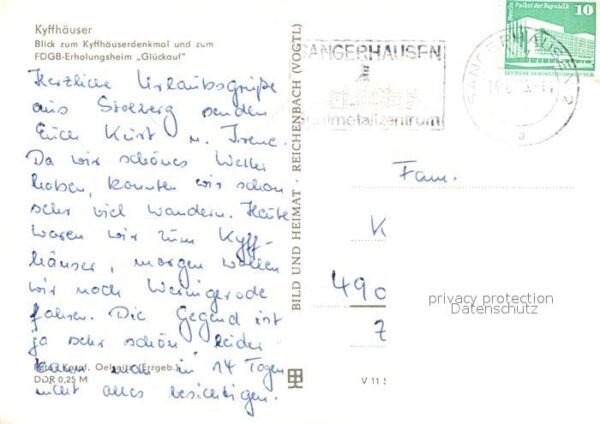 Kyffhäuser
Blick zum Kyffhäuserdenkmal und zum
FDGB-Erholungsheim „Glückauf"
Herzliche Urlaubsgrüße
aus Stolberg senden
Euch Kurt u. Irene.
Da wir schönes Wetter
haben, konnten wir schon
sehr viel wandern. Heute
waren wir zum Kyff-
häuser, morgen wollen
wir noch Wernigerode
fahren. Die Gegend ist
ja sehr schön leider
kann man in 14 Tagen
nicht alles besichtigen.
Oelsnitz (Erzgeb.)
DDR 0,25 M
BILD UND HEIMAT REICHENBACH (VOGTL)
V 11
SANGERHAUSEN
Buntmetallzentrum
SANGERHAUSEN 2
a
Berlin Palast der Republik
10
DEUTSCHE DEMOKRATISCHE REPUBLIK
Fam.
K
490
Z
privacy protection
Datenschutz